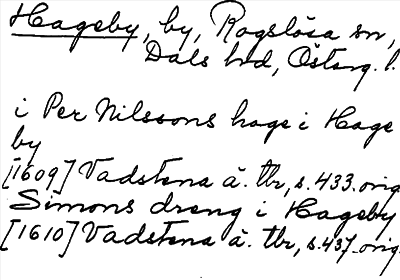 Hageby, by, Rogslösa sn,
Dals hd, Österg. l.
i Per Nilssons hage i Hage
by
[1609] Vadstena ä. tbr, s. 433. orig
Simons dreng i Hageby
[1610] Vadstena ä. tbr, s. 437. orig.